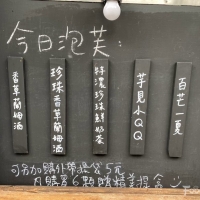 今日泡芙：
香草蘭姆酒
珍珠香草蘭姆酒
特濃珍珠鮮奶茶
芋見小QQ
百芒一夏
可另加購外帶提袋5元
內購滿6顆贈精美提盒